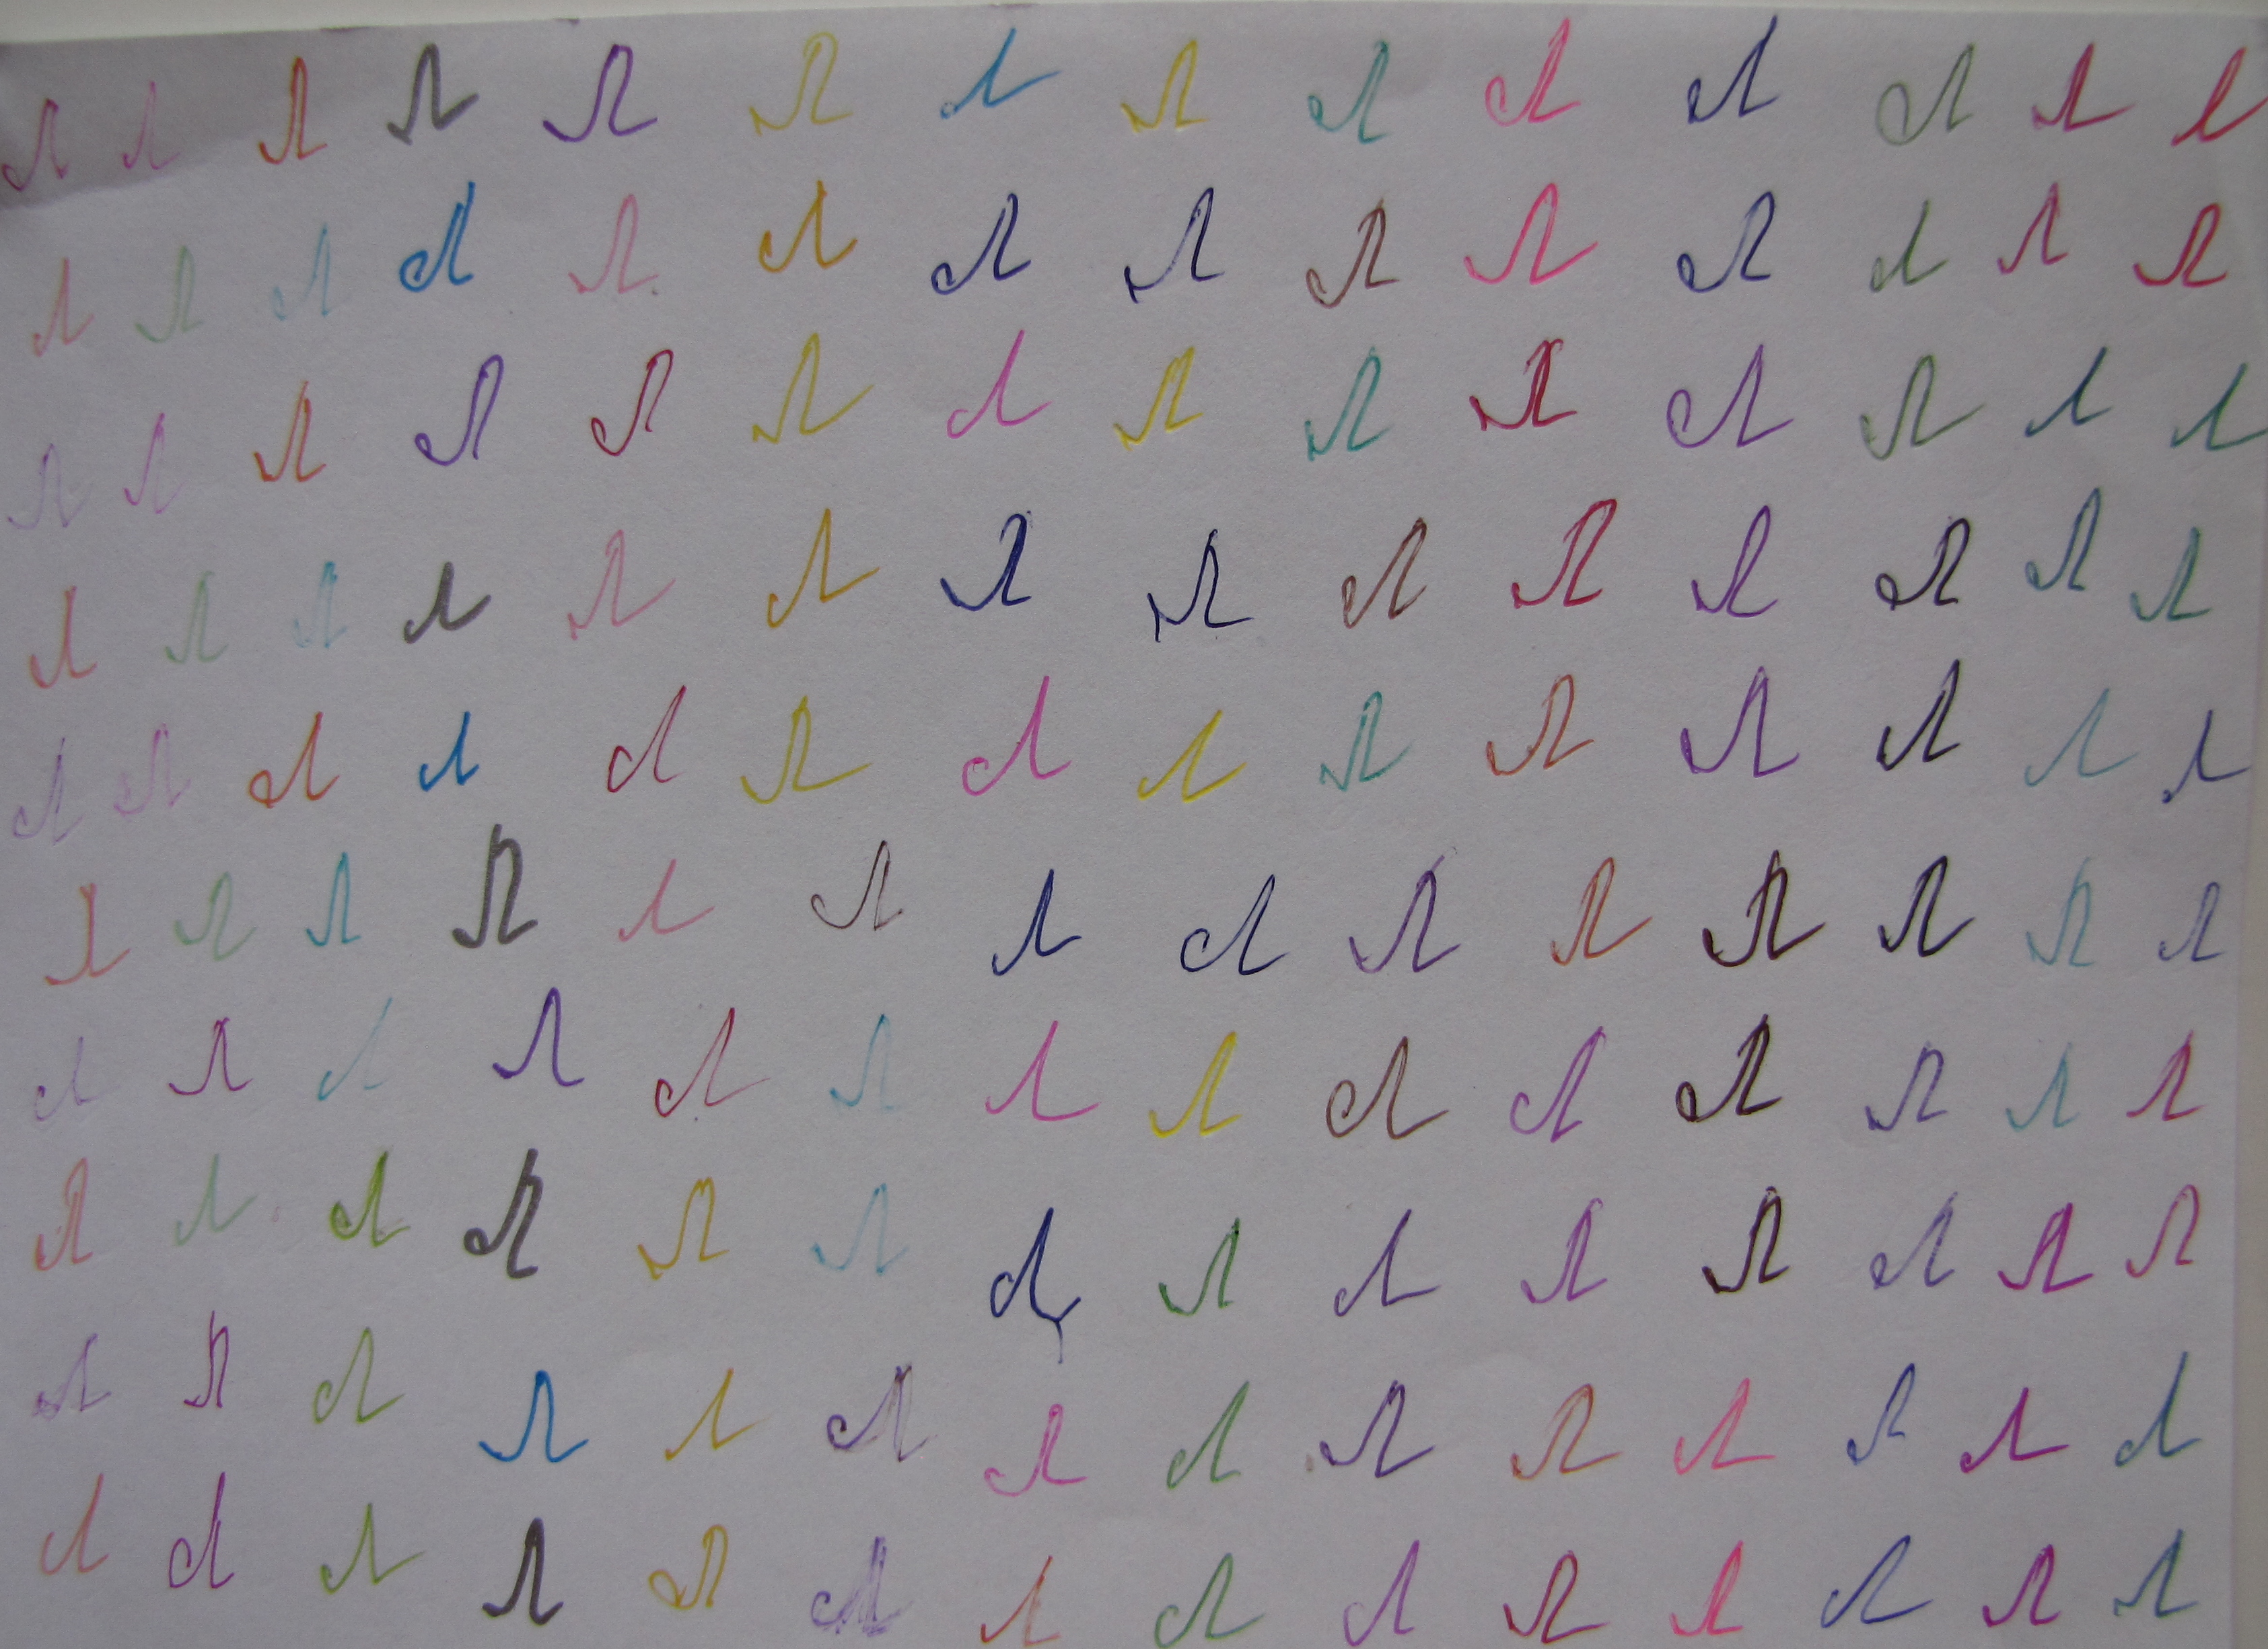 л л л л л л л л л л л л л л
л л л л л л л л л л л л л л
л л л л л л л л л л л л л л
л л л л л л л л л л л л л л
л л л л л л л л л л л л л л
л л л л л л л л л л л л л л
л л л л л л л л л л л л л л
л л л л л л л л л л л л л л
л л л л л л л л л л л л л л
л л л л л л л л л л л л л л